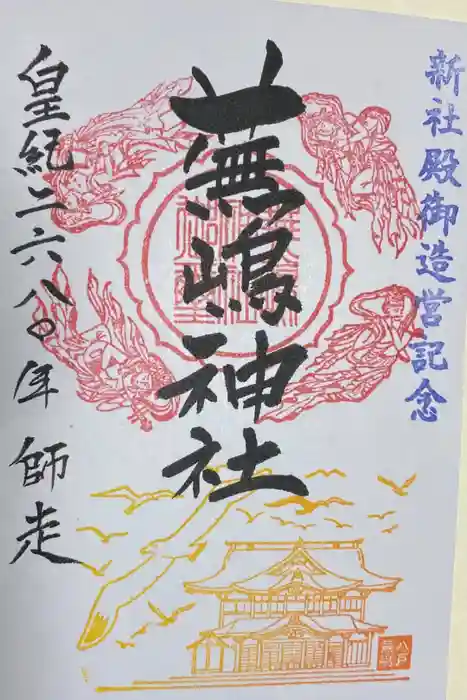 新社殿御造営記念
蕪嶋神社
皇紀二六八〇年 師走
八戸